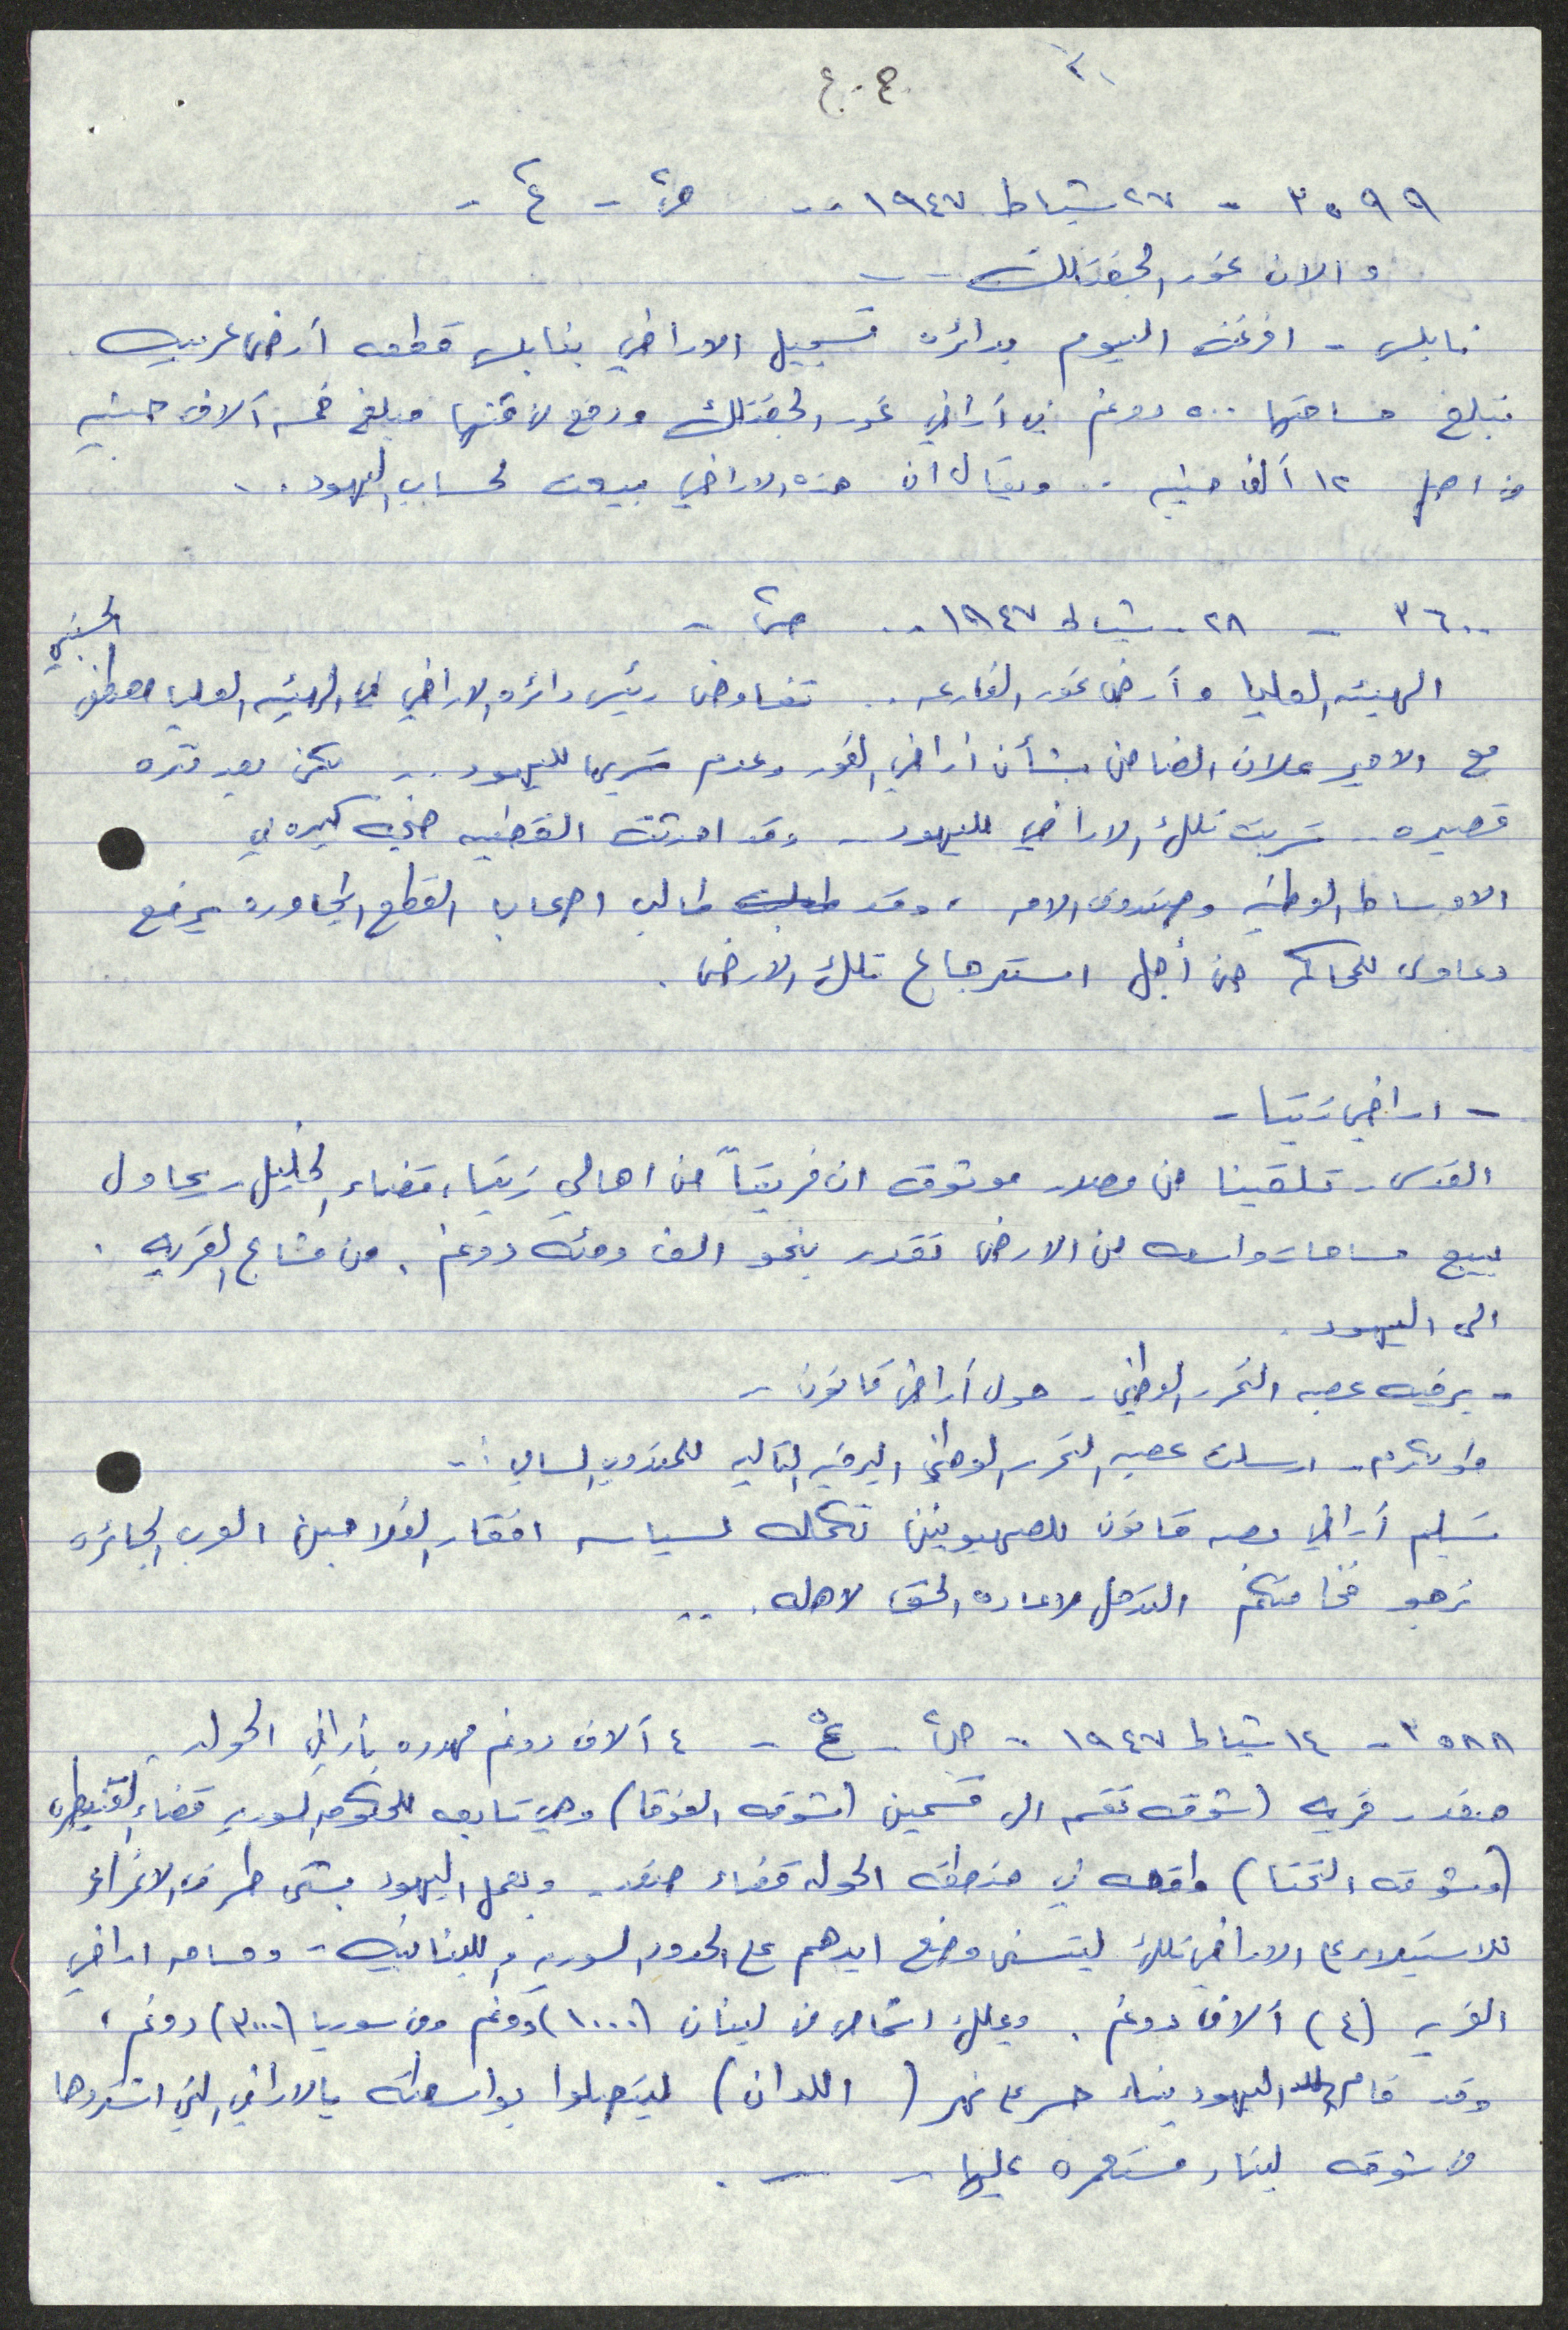 ٣٥٩٩ - ٢٧ شباط ١٩٤٧ .. ص٢ - ع٢ -
والان غور الجفتلك --
نابلس - افرغت اليوم بدائره تسجيل الاراضي بنابلس قطعه أرض عربيه
تبلغ مساحتها ٥٠٠ دونم من أراضي غور الجفتلك ودفع من ثمنها مبلغ خمسه آلاف جنيه
من اصل ١٢ ألف جنيه .. ويقال ان هذه الاراضي بيعت لحساب اليهود ..
٣٦٠٠ - ٢٨ - شباط ١٩٤٧ .. ص٢ -
الهيئه العليا وأرض غور الفارعه .. تفاوض رئيس دائره الاراضي في الهيئه العليا مصطفى الحسيني
مع الامير علان الضامن بشأن أراضي الغور وعدم تسريبها لليهود .. لكن بعد فتره
قصيره .. تسربت تلك الاراضي لليهود - وقد احدثت القضيه ضجه كبيره في
الاوساط الوطنيه وصندوق الامه ، وقد طالب اصحاب القطع المجاوره برفع
دعاوى للمحاكم من أجل استرجاع تلك الارض .
- اراضي زيتا -
القدس - تلقينا من مصدر موثوق ان فريقاً من اهالي زيتا، قضاء الخليل - يحاول
بيع مساحات واسعه من الارض تقدر بنحو الف ومئه دونم ، من مشاع القريه .
الى اليهود .
- برقيه عصبه التحرر الوطني - حول أراضي قانون -
طولكرم - ارسلت عصبه التحرر الوطني البرقيه التاليه للمندوب السامي : -
تسليم أراضي قانون للصهيونين تكمله لسياسه افقار الفلاحين العرب الجائره
نرجو فخامتكم التدخل لاعاده الحق لاهله . ..
٣٥٨٨ - ١٤ شباط ١٩٤٧ - ص٢ - ع٥ - ٤ آلاف دونم مهدده بأراضي الحوله
صفد - قريه (شوقه تقسم الى قسمين (شوقه الفوقا) وهي تابعه للحكومه السوريه قضاء القنيطره
(وشوقه التحتا) واقعه في منطقه الحوله قضاء صفد - ويعمل اليهود بشتى طرق الاغراء
للاستيلاء على الاراضي تلك ليتسنى وضع ايدهم على الحدود السوريه واللبنانيه - ومساحه اراضي
القريه (٤) آلاف دونم . ويملك اشخاص من لبنان (١٠٠٠) دونم ومن سوريا (٣٠٠٠) دونم ،
وقد قام اليهود ببناء جسر على نهر (اللدان) ليتصلوا بواسطته بالاراضي التي اشتروها
من شوقه لبناء مستعمره عليها - .